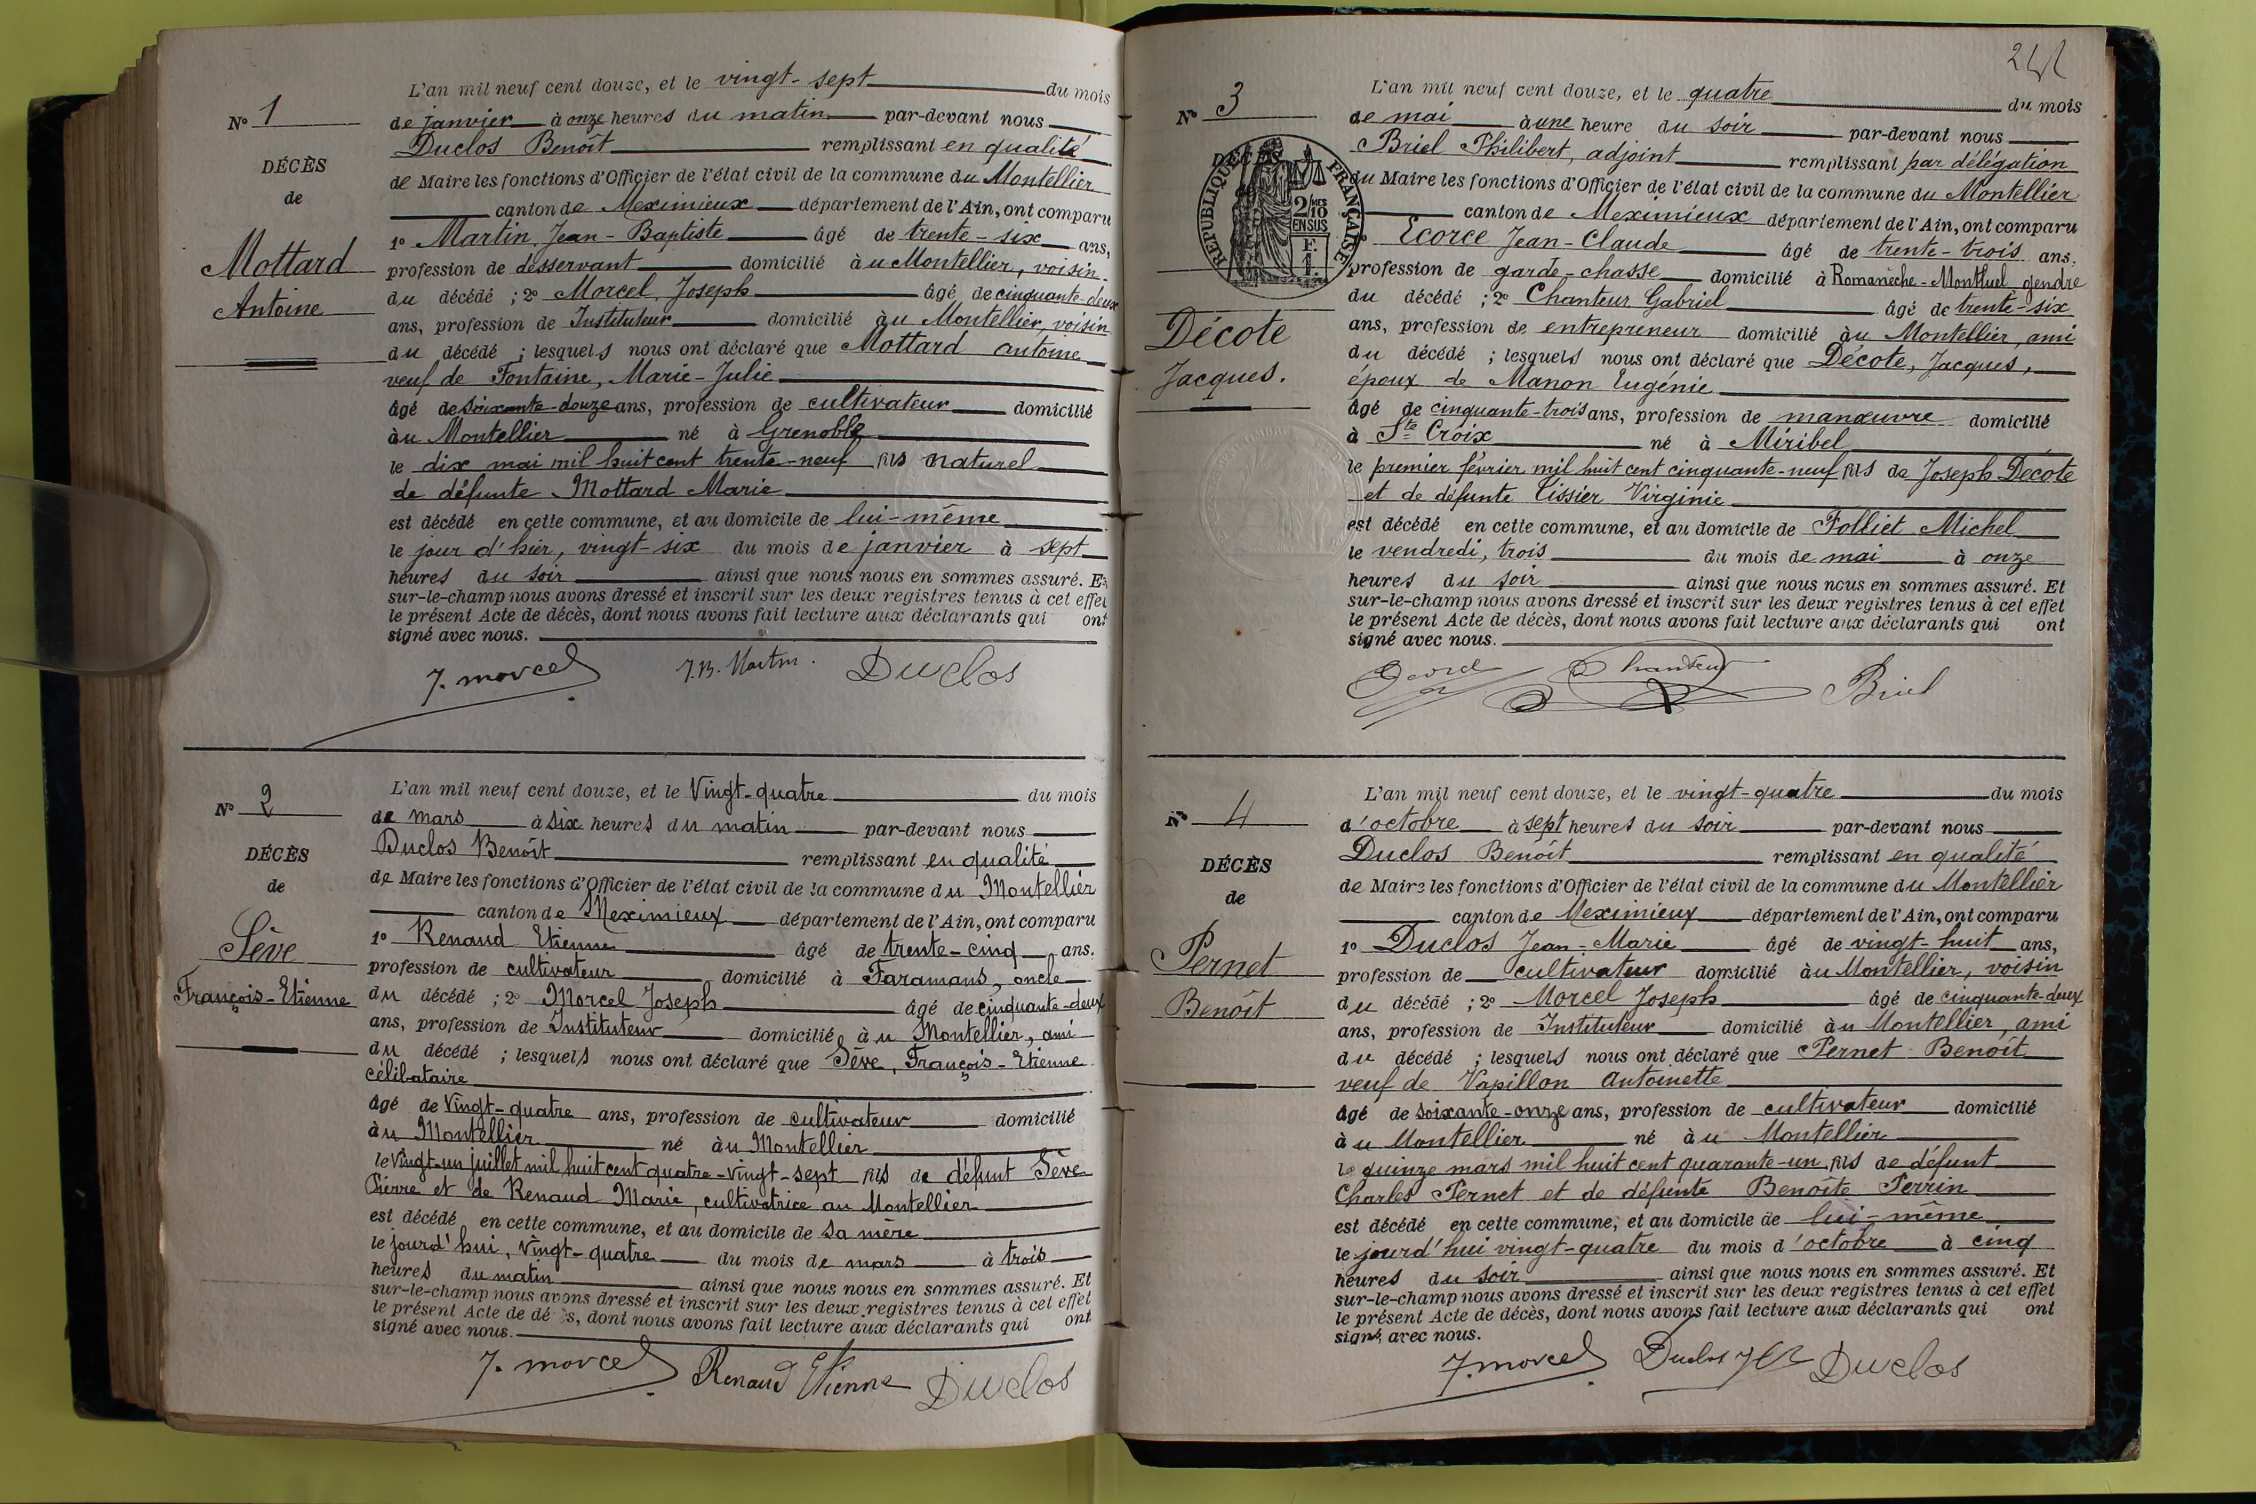 L'an mil neuf cent douze, et le vingt-sept du mois
N° 1
de janvier à onze heures du matin par-devant nous
Duclos Benoît remplissant en qualité
DÉCÈS
de Maire les fonctions d'Officier de l'état civil de la commune du Montellier
de
canton de Meximieux département de l'Ain, ont comparu
1° Martin, Jean-Baptiste âgé de trente-six ans,
Mottard
profession de desservant domicilié au Montellier, voisin
Antoine
du décédé ; 2° Morcel, Joseph âgé de cinquante-deux
ans, profession de Instituteur domicilié au Montellier, voisin
du décédé ; lesquels nous ont déclaré que Mottard antoine
veuf de Fontaine, Marie-Julie
âgé de soixante-douze ans, profession de cultivateur domicilié
au Montellier né à Grenoble
le dix mai mil huit cent trente-neuf fils naturel
de défunte Mottard Marie
est décédé en cette commune, et au domicile de lui-même
le jour d'hier, vingt-six du mois de janvier à sept
heures du soir ainsi que nous nous en sommes assuré. Et
sur-le-champ nous avons dressé et inscrit sur les deux registres tenus à cet effet
le présent Acte de décès, dont nous avons fait lecture aux déclarants qui ont
signé avec nous.
J. morcel J.B. Martin. Duclos
L'an mil neuf cent douze, et le Vingt-quatre du mois
N° 2
de mars à six heures du matin par-devant nous
Duclos Benoît remplissant en qualité
DÉCÈS
de Maire les fonctions d'Officier de l'état civil de la commune du Montellier
de
canton de Meximieux département de l'Ain, ont comparu
1° Renaud Etienne âgé de trente-cinq ans.
Sève
profession de cultivateur domicilié à Faramans, oncle
François-Etienne
du décédé ; 2° Morcel Joseph âgé de cinquante-deux
ans, profession de Instituteur domicilié au Montellier, ami
du décédé ; lesquels nous ont déclaré que Sève, François-Etienne
célibataire
âgé de Vingt-quatre ans, profession de cultivateur domicilié
au Montellier né au Montellier
le Vingt-un juillet mil huit cent quatre-Vingt-sept fils de défunt Sève
Pierre et de Renaud Marie, cultivatrice au Montellier
est décédé en cette commune, et au domicile de sa mère
le jourd'hui, Vingt-quatre du mois de mars à trois
heures du matin ainsi que nous nous en sommes assuré. Et
sur-le-champ nous avons dressé et inscrit sur les deux registres tenus à cet effet
le présent Acte de décès, dont nous avons fait lecture aux déclarants qui ont
signé avec nous.
J. morcel Renaud Etienne Duclos
L'an mil neuf cent douze, et le quatre du mois
N° 3
de mai à une heure du soir par-devant nous
Briel Philibert, adjoint remplissant par délégation
DÉCÈS
RÉPUBLIQUE FRANÇAISE
2/10 MES EN SUS
F. 1.
du Maire les fonctions d'Officier de l'état civil de la commune du Montellier
canton de Meximieux département de l'Ain, ont comparu
Ecorce Jean-Claude âgé de trente-trois ans.
profession de garde-chasse domicilié à Romanèche-Montluel gendre
du décédé ; 2° Chanteur Gabriel âgé de trente-six
Décote
ans, profession de entrepreneur domicilié au Montellier, ami
du décédé ; lesquels nous ont déclaré que Décote, Jacques,
Jacques.
époux de Manon Eugénie
âgé de cinquante-trois ans, profession de manœuvre domicilié
à Ste Croix né à Miribel
le premier février mil huit cent cinquante-neuf fils de Joseph Décote
et de défunte Tissier Virginie
est décédé en cette commune, et au domicile de Folliet Michel
le vendredi, trois du mois de mai à onze
heures du soir ainsi que nous nous en sommes assuré. Et
sur-le-champ nous avons dressé et inscrit sur les deux registres tenus à cet effet
le présent Acte de décès, dont nous avons fait lecture aux déclarants qui ont
signé avec nous.
Chanteur Briel
L'an mil neuf cent douze, et le vingt-quatre du mois
N° 4
d'octobre à sept heures du soir par-devant nous
Duclos Benoît remplissant en qualité
DÉCÈS
de Maire les fonctions d'Officier de l'état civil de la commune du Montellier
de
canton de Meximieux département de l'Ain, ont comparu
1° Duclos Jean-Marie âgé de vingt-huit ans,
Pernet
profession de cultivateur domicilié au Montellier, voisin
Benoît
du décédé ; 2° Morcel Joseph âgé de cinquante-deux
ans, profession de Instituteur domicilié au Montellier, ami
du décédé ; lesquels nous ont déclaré que Pernet Benoît
veuf de Vapillon Antoinette
âgé de soixante-onze ans, profession de cultivateur domicilié
au Montellier né au Montellier
le quinze mars mil huit cent quarante-un fils de défunt
Charles Pernet et de défunte Benoîte Perrin
est décédé en cette commune, et au domicile de lui-même
le jourd'hui vingt-quatre du mois d'octobre à cinq
heures du soir ainsi que nous nous en sommes assuré. Et
sur-le-champ nous avons dressé et inscrit sur les deux registres tenus à cet effet
le présent Acte de décès, dont nous avons fait lecture aux déclarants qui ont
signé avec nous.
J. morcel Duclos Duclos